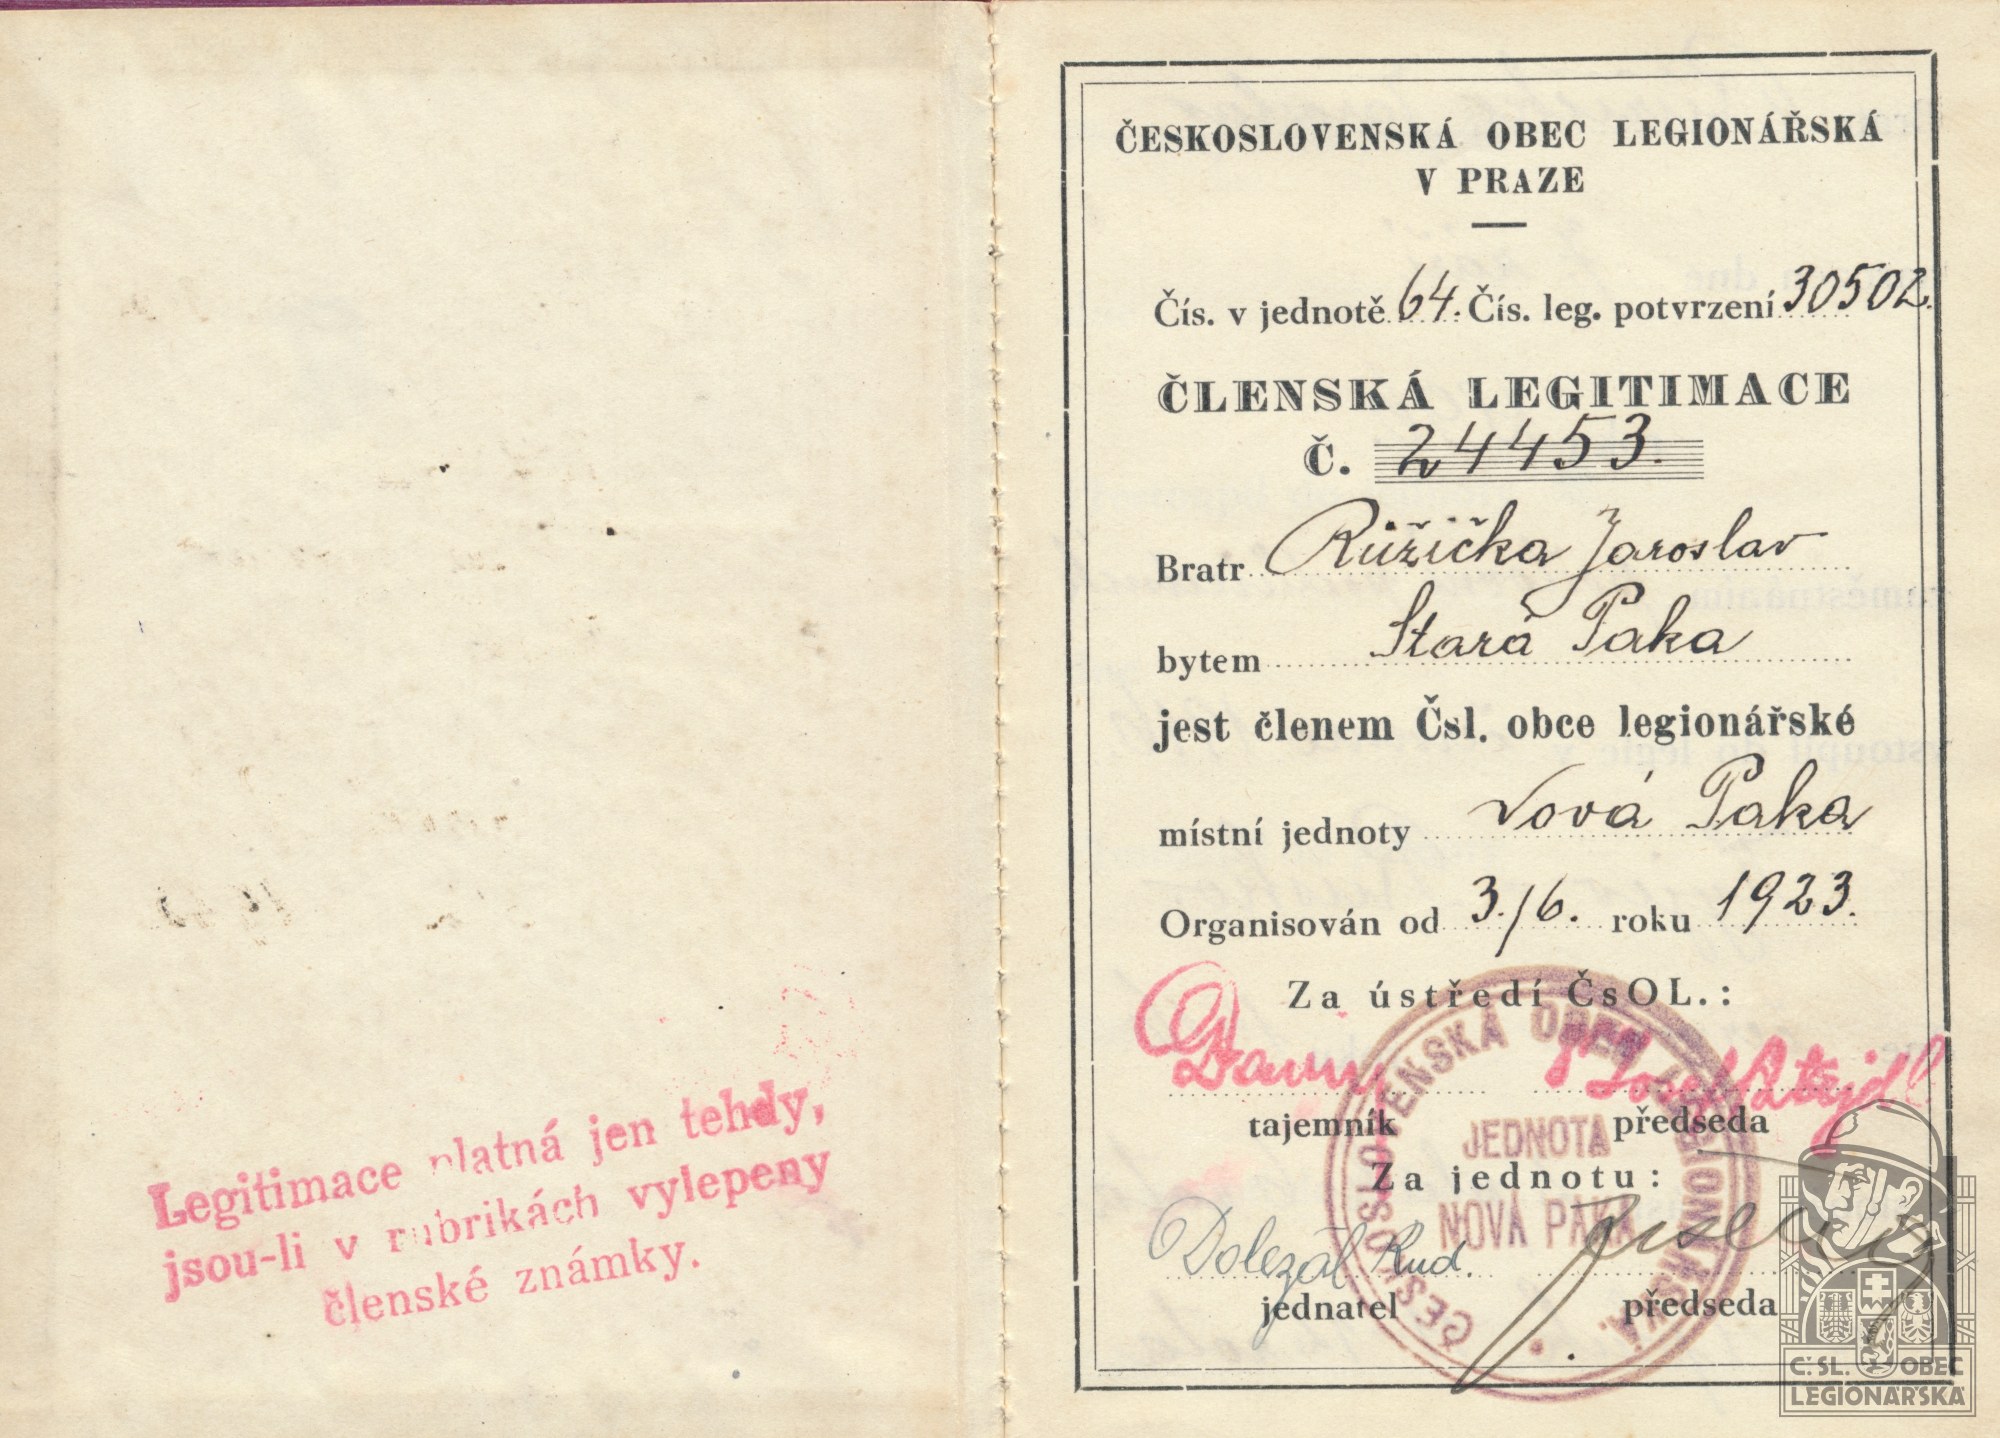 Legitimace platná jen tehdy,
jsou-li v rubrikách vylepeny
členské známky.
ČESKOSLOVENSKÁ OBEC LEGIONÁŘSKÁ
V PRAZE
Čís. v jednotě 64. Čís. leg. potvrzení 30502.
ČLENSKÁ LEGITIMACE
Č. 24453.
Bratr Růžička Jaroslav
bytem Stará Paka
jest členem Čsl. obce legionářské
místní jednoty Nová Paka
Organisován od 3./6. roku 1923.
Za ústředí ČsOL.:
Josef
tajemník předseda
Za jednotu:
Doležal Rud.
jednatel předseda
ČESKOSLOVENSKÁ OBEC LEGIONÁŘSKÁ.
JEDNOTA
NOVÁ PAKA
Č.SL. OBEC
LEGIONÁŘSKÁ